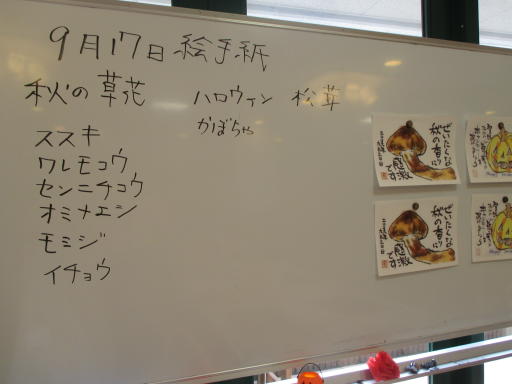 9月17日 絵手紙
秋の草花
ススキ
ワレモコウ
センニチコウ
オミナエシ
モミジ
イチョウ
ハロウィン 松茸
かぼちゃ
ぜいたくな
秋の香りに
感激
です
ぜいたくな
秋の香りに
感激
です